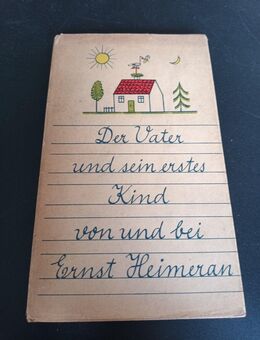 Der Vater
und sein erstes
Kind
von und bei
Ernst Heimeran